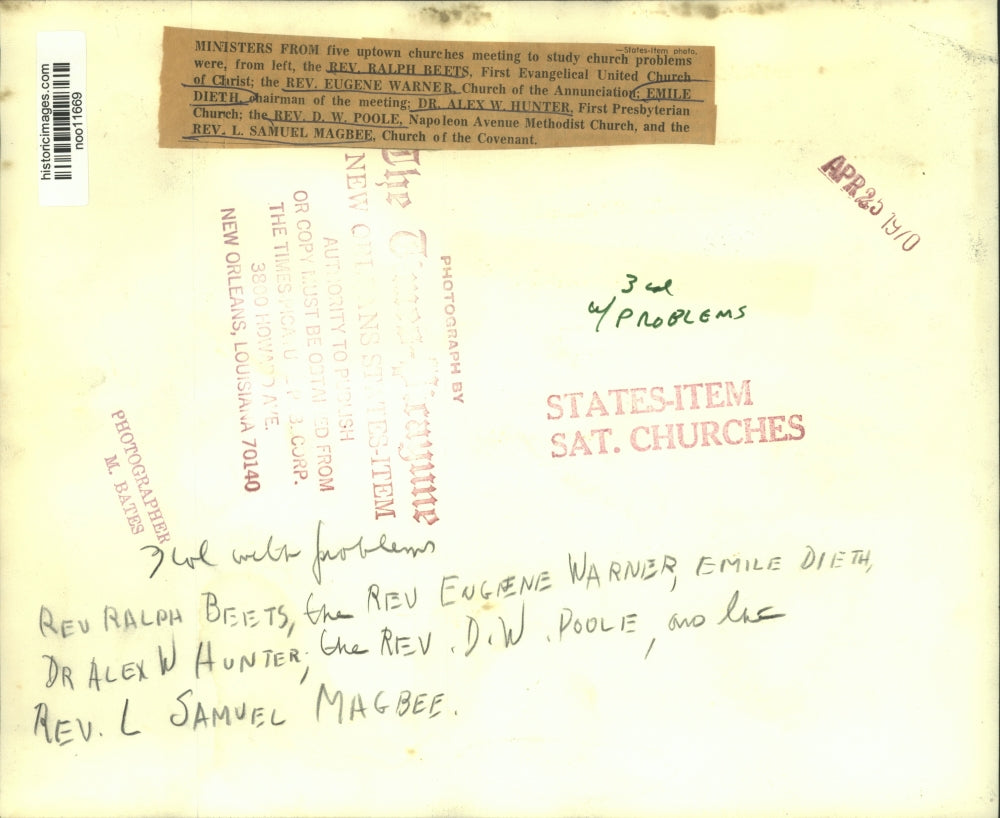 historicimages.com
noo11669
—States-Item photo.
MINISTERS FROM five uptown churches meeting to study church problems
were, from left, the REV. RALPH BEETS, First Evangelical United Church
of Christ; the REV. EUGENE WARNER, Church of the Annunciation; EMILE
DIETH, chairman of the meeting; DR. ALEX W. HUNTER, First Presbyterian
Church; the REV. D. W. POOLE, Napoleon Avenue Methodist Church, and the
REV. L. SAMUEL MAGBEE, Church of the Covenant.
APR 25 1970
3 col
w/ PROBLEMS
STATES-ITEM
SAT. CHURCHES
PHOTOGRAPH BY
The Times-Picayune
NEW ORLEANS STATES-ITEM
AUTHORITY TO PUBLISH
OR COPY MUST BE OBTAINED FROM
THE TIMES-PICAYUNE PUB. CORP.
3800 HOWARD AVE.
NEW ORLEANS, LOUISIANA 70140
PHOTOGRAPHER
M. BATES
3 col with problems
REV RALPH BEETS, the REV EUGENE WARNER, EMILE DIETH,
DR ALEX W HUNTER, the REV. D.W. POOLE, and the
REV. L SAMUEL MAGBEE.